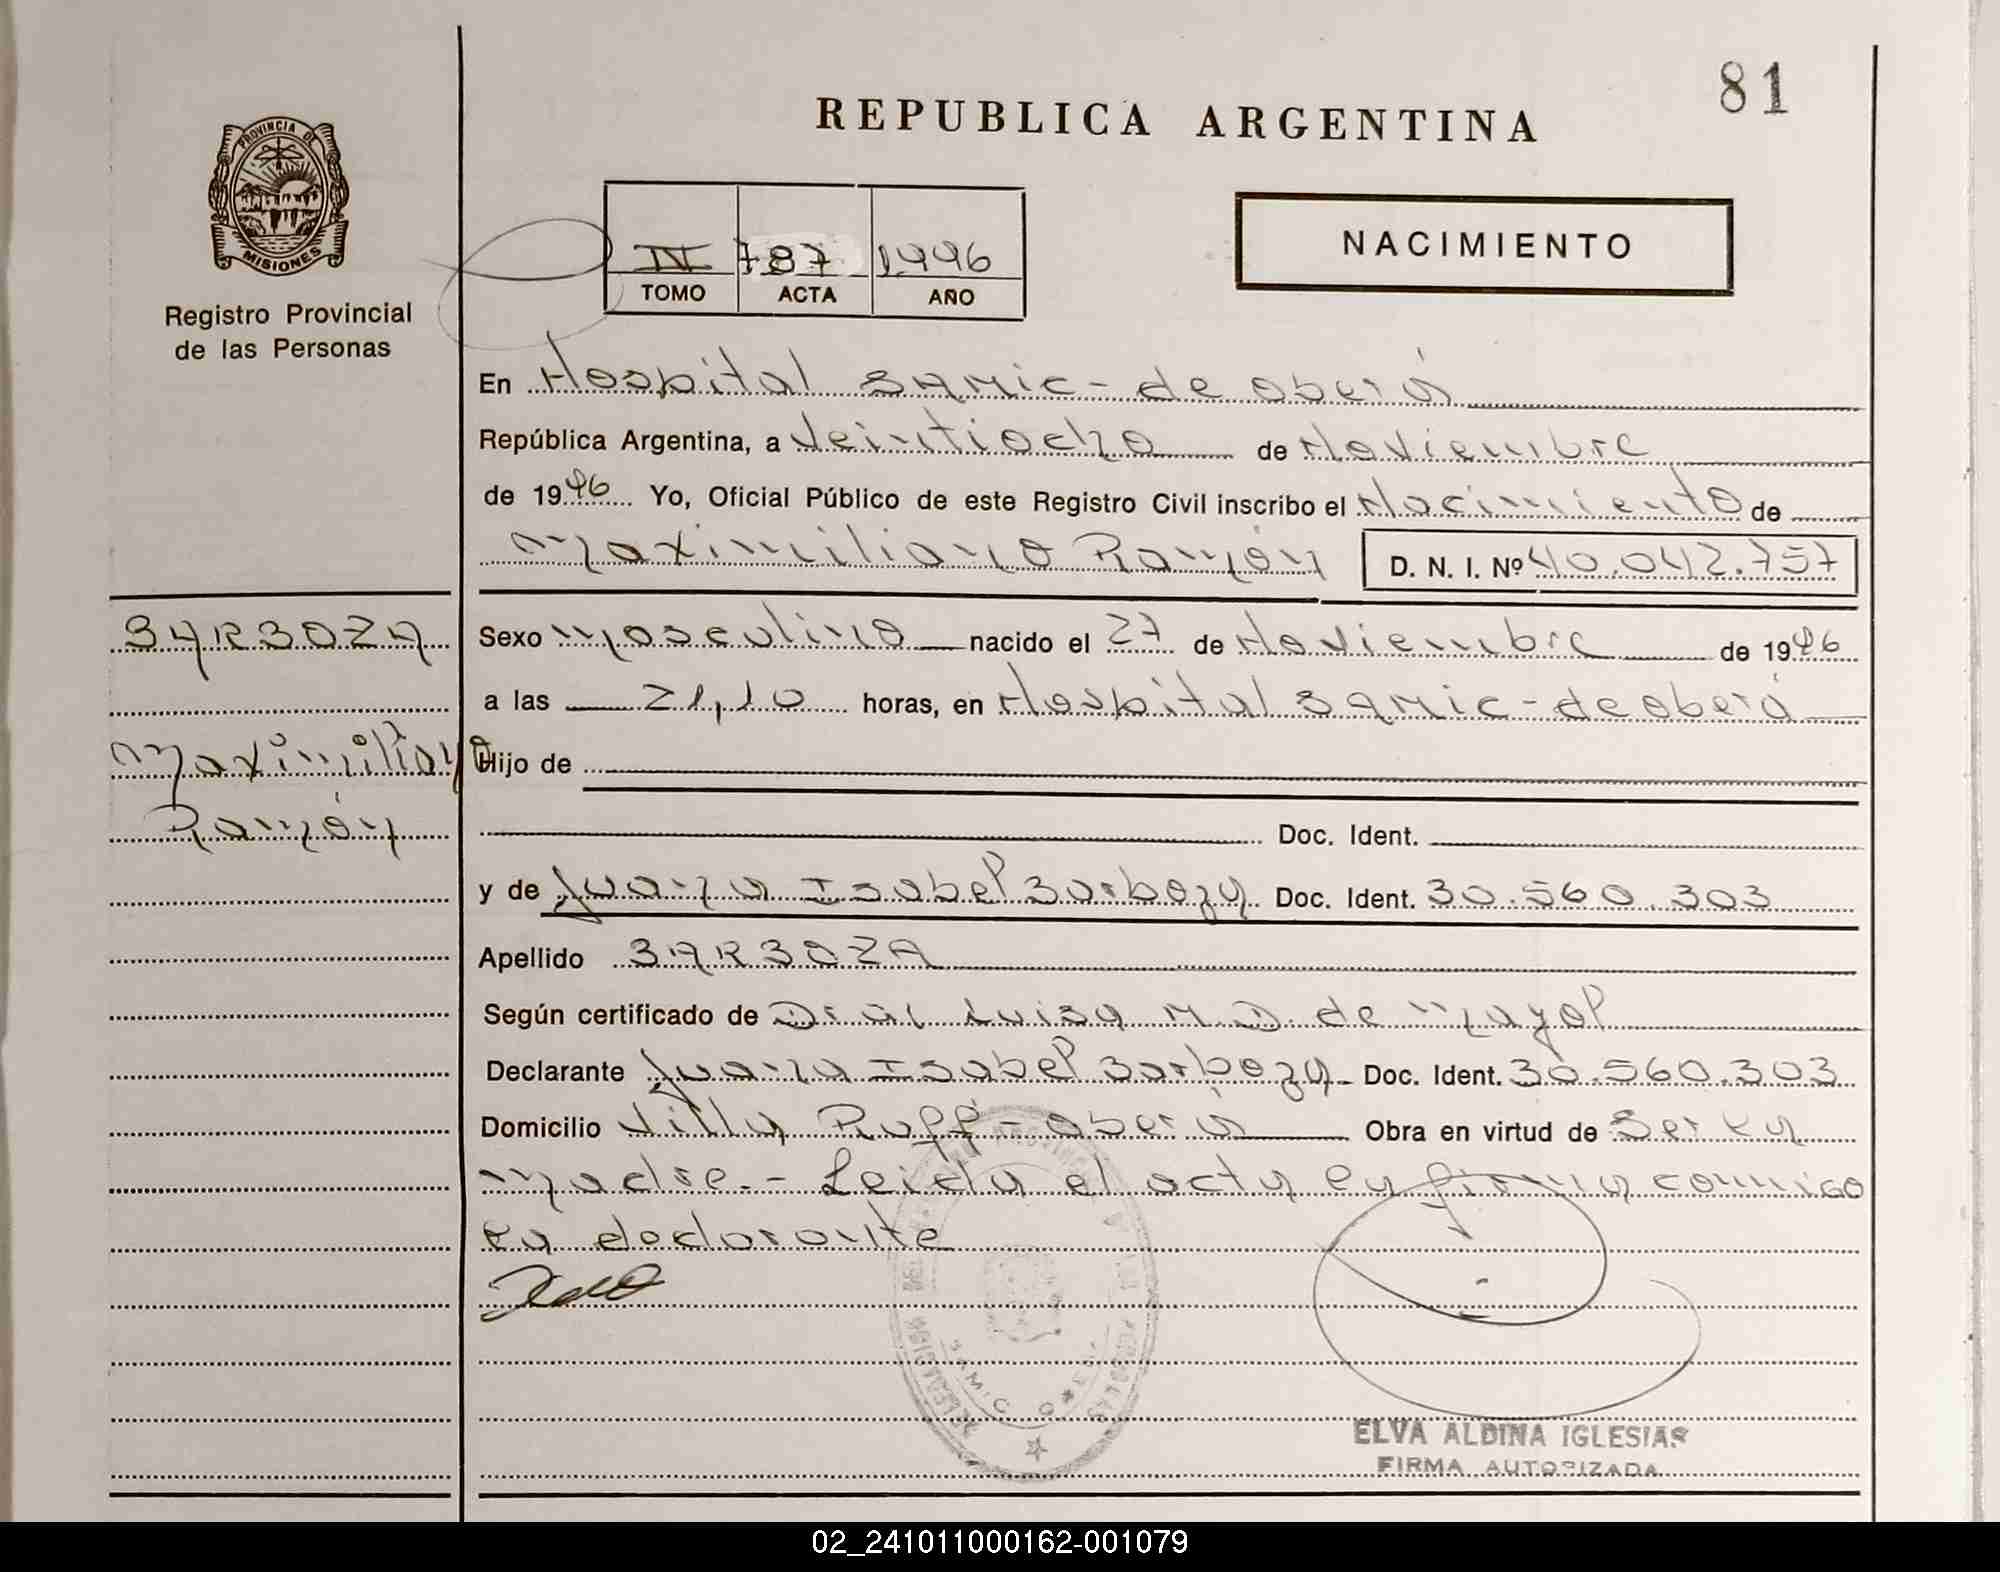 81
REPUBLICA ARGENTINA
PROVINCIA DE
MISIONES
Registro Provincial
de las Personas
IV 787 1996
TOMO ACTA AÑO
NACIMIENTO
En Hospital SAMIC - de Oberá
República Argentina, a Veintiocho de Noviembre
de 1996 Yo, Oficial Público de este Registro Civil inscribo el Nacimiento de
Maximiliano Ramón D. N. I. Nº 40.042.757
BARBOZA
Maximiliano
Ramón
Sexo masculino nacido el 27 de Noviembre de 1996
a las 21,10 horas, en Hospital SAMIC - de Oberá
Hijo de
Doc. Ident.
y de Juana Isabel Barboza Doc. Ident. 30.560.303
Apellido BARBOZA
Según certificado de Luisa M. D. de Mayol
Declarante Juana Isabel Barboza Doc. Ident. 30.560.303
Domicilio Villa Ruff - Oberá Obra en virtud de Ser la
madre. - Leida el acta la firma conmigo
la declarante
SAMIC
ELVA ALDINA IGLESIAS
FIRMA AUTORIZADA
02_241011000162-001079